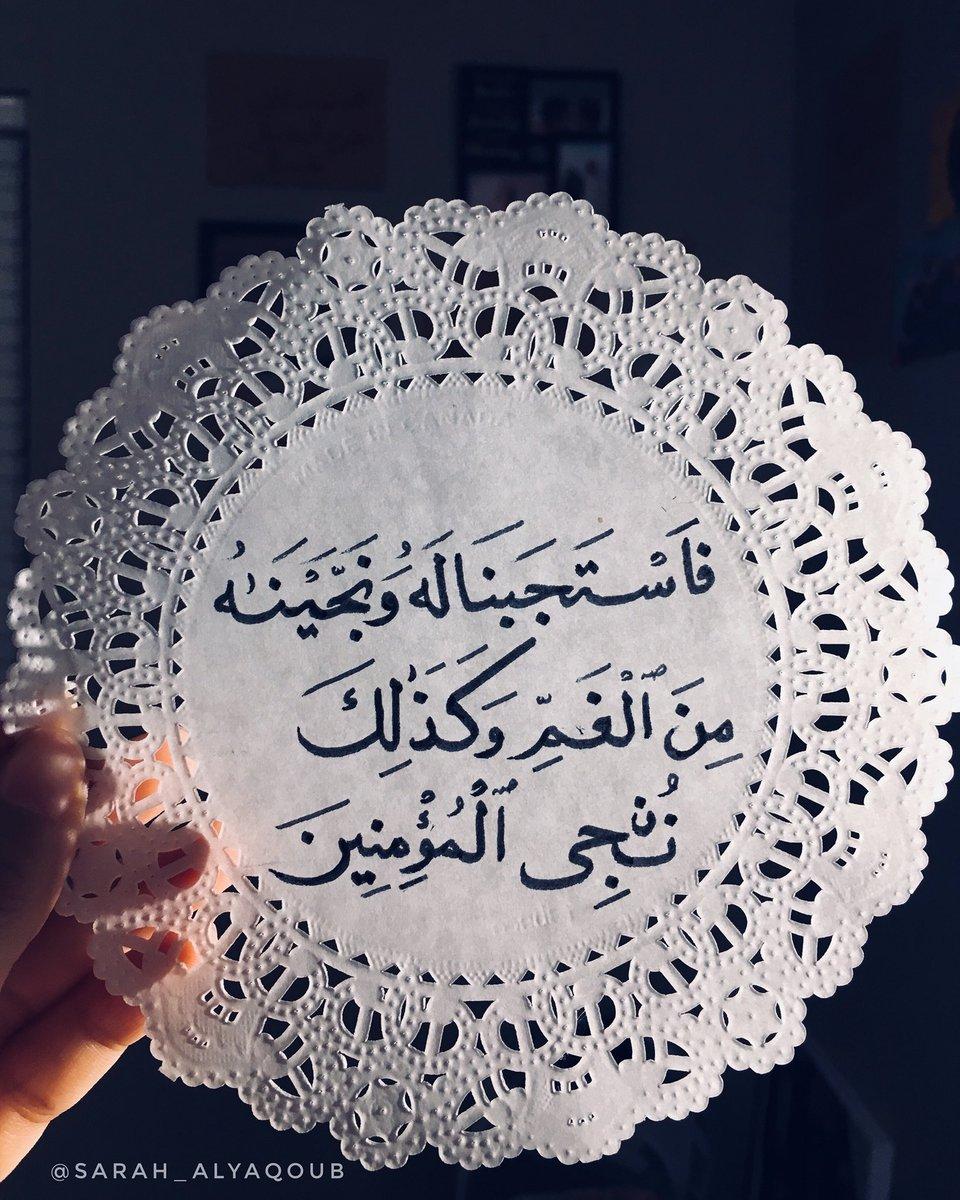 فَاسْتَجَبْنَا لَهُ وَنَجَّيْنَٰهُ
مِنَ ٱلْغَمِّ وَكَذَٰلِكَ
نُۨجِى ٱلْمُؤْمِنِينَ
@SARAH_ALYAQOUB